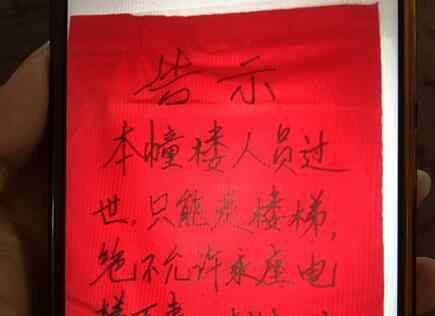 告示
本幢楼人员过
世,只能走楼梯,
绝不允许乘座电
梯下